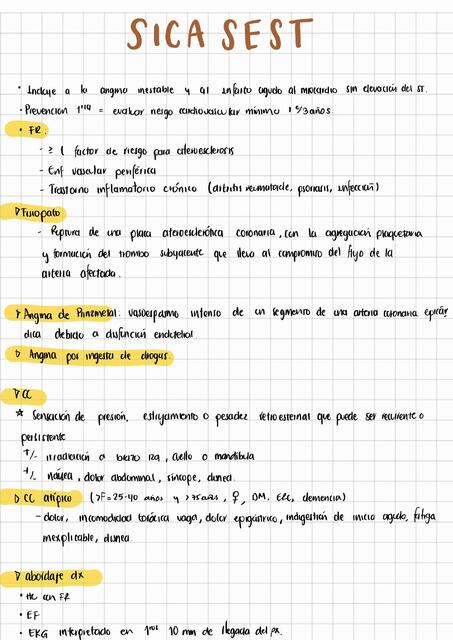 SICA SEST
• Incluye a la angina inestable y al infarto agudo al miocardio sin elevación del ST.
• Prevención 1ria = evaluar riesgo cardiovascular mínimo 1 5/3 años.
• FR:
- ≥ 1 factor de riesgo para aterosclerosis
- Enf vascular periférica
- Trastorno inflamatorio crónico (artritis reumatoide, psoriasis, infección)
▷ Fisiopato
- Ruptura de una placa aterosclerótica coronaria, con la agregación plaquetaria
y formación del trombo subyacente que lleva al compromiso del flujo de la
arteria afectada.
▷ Angina de Prinzmetal: vasoespasmo intenso de un segmento de una arteria coronaria epicár
dica debido a disfunción endotelial.
▷ Angina por ingesta de drogas.
▷ CC
☆ Sensación de presión, estrujamiento o pesadez retroesternal que puede ser recurrente o
persistente
+/- irradiación a brazo izq, cuello o mandíbula
+/- náusea, dolor abdominal, síncope, disnea.
▷ CC atípico ( 25-40 años y >75 años, ♀, DM, ERC, demencia)
- dolor, incomodidad torácica vaga, dolor epigástrico, indigestión de inicio agudo, fatiga
inexplicable, disnea.
▷ abordaje dx
• HC con FR
• EF
• EKG interpretado en 1ros 10 min de llegada del px.